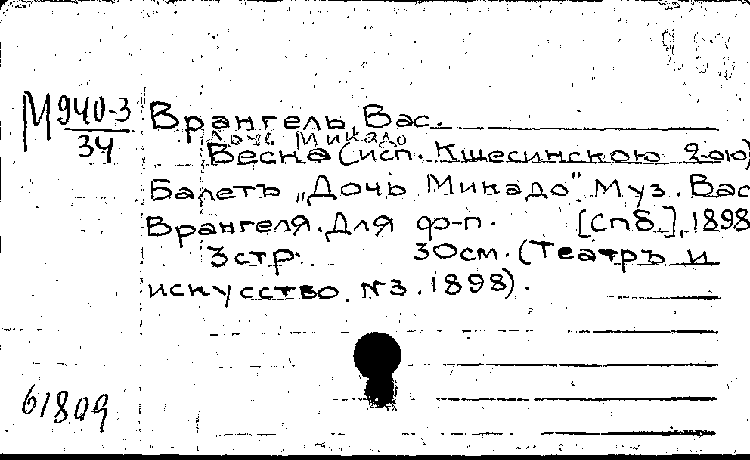 М 940-3
34
Врангель Вас.
Дочь Микадо
Весна (исп. Кшесинскою 2-ою)
Балетъ „Дочь Микадо" Муз. Вас
Врангеля. Для ф-п. [Спб.], 1898
3 стр. 30 см. (Театръ и
искусство. №3. 1898).
61809